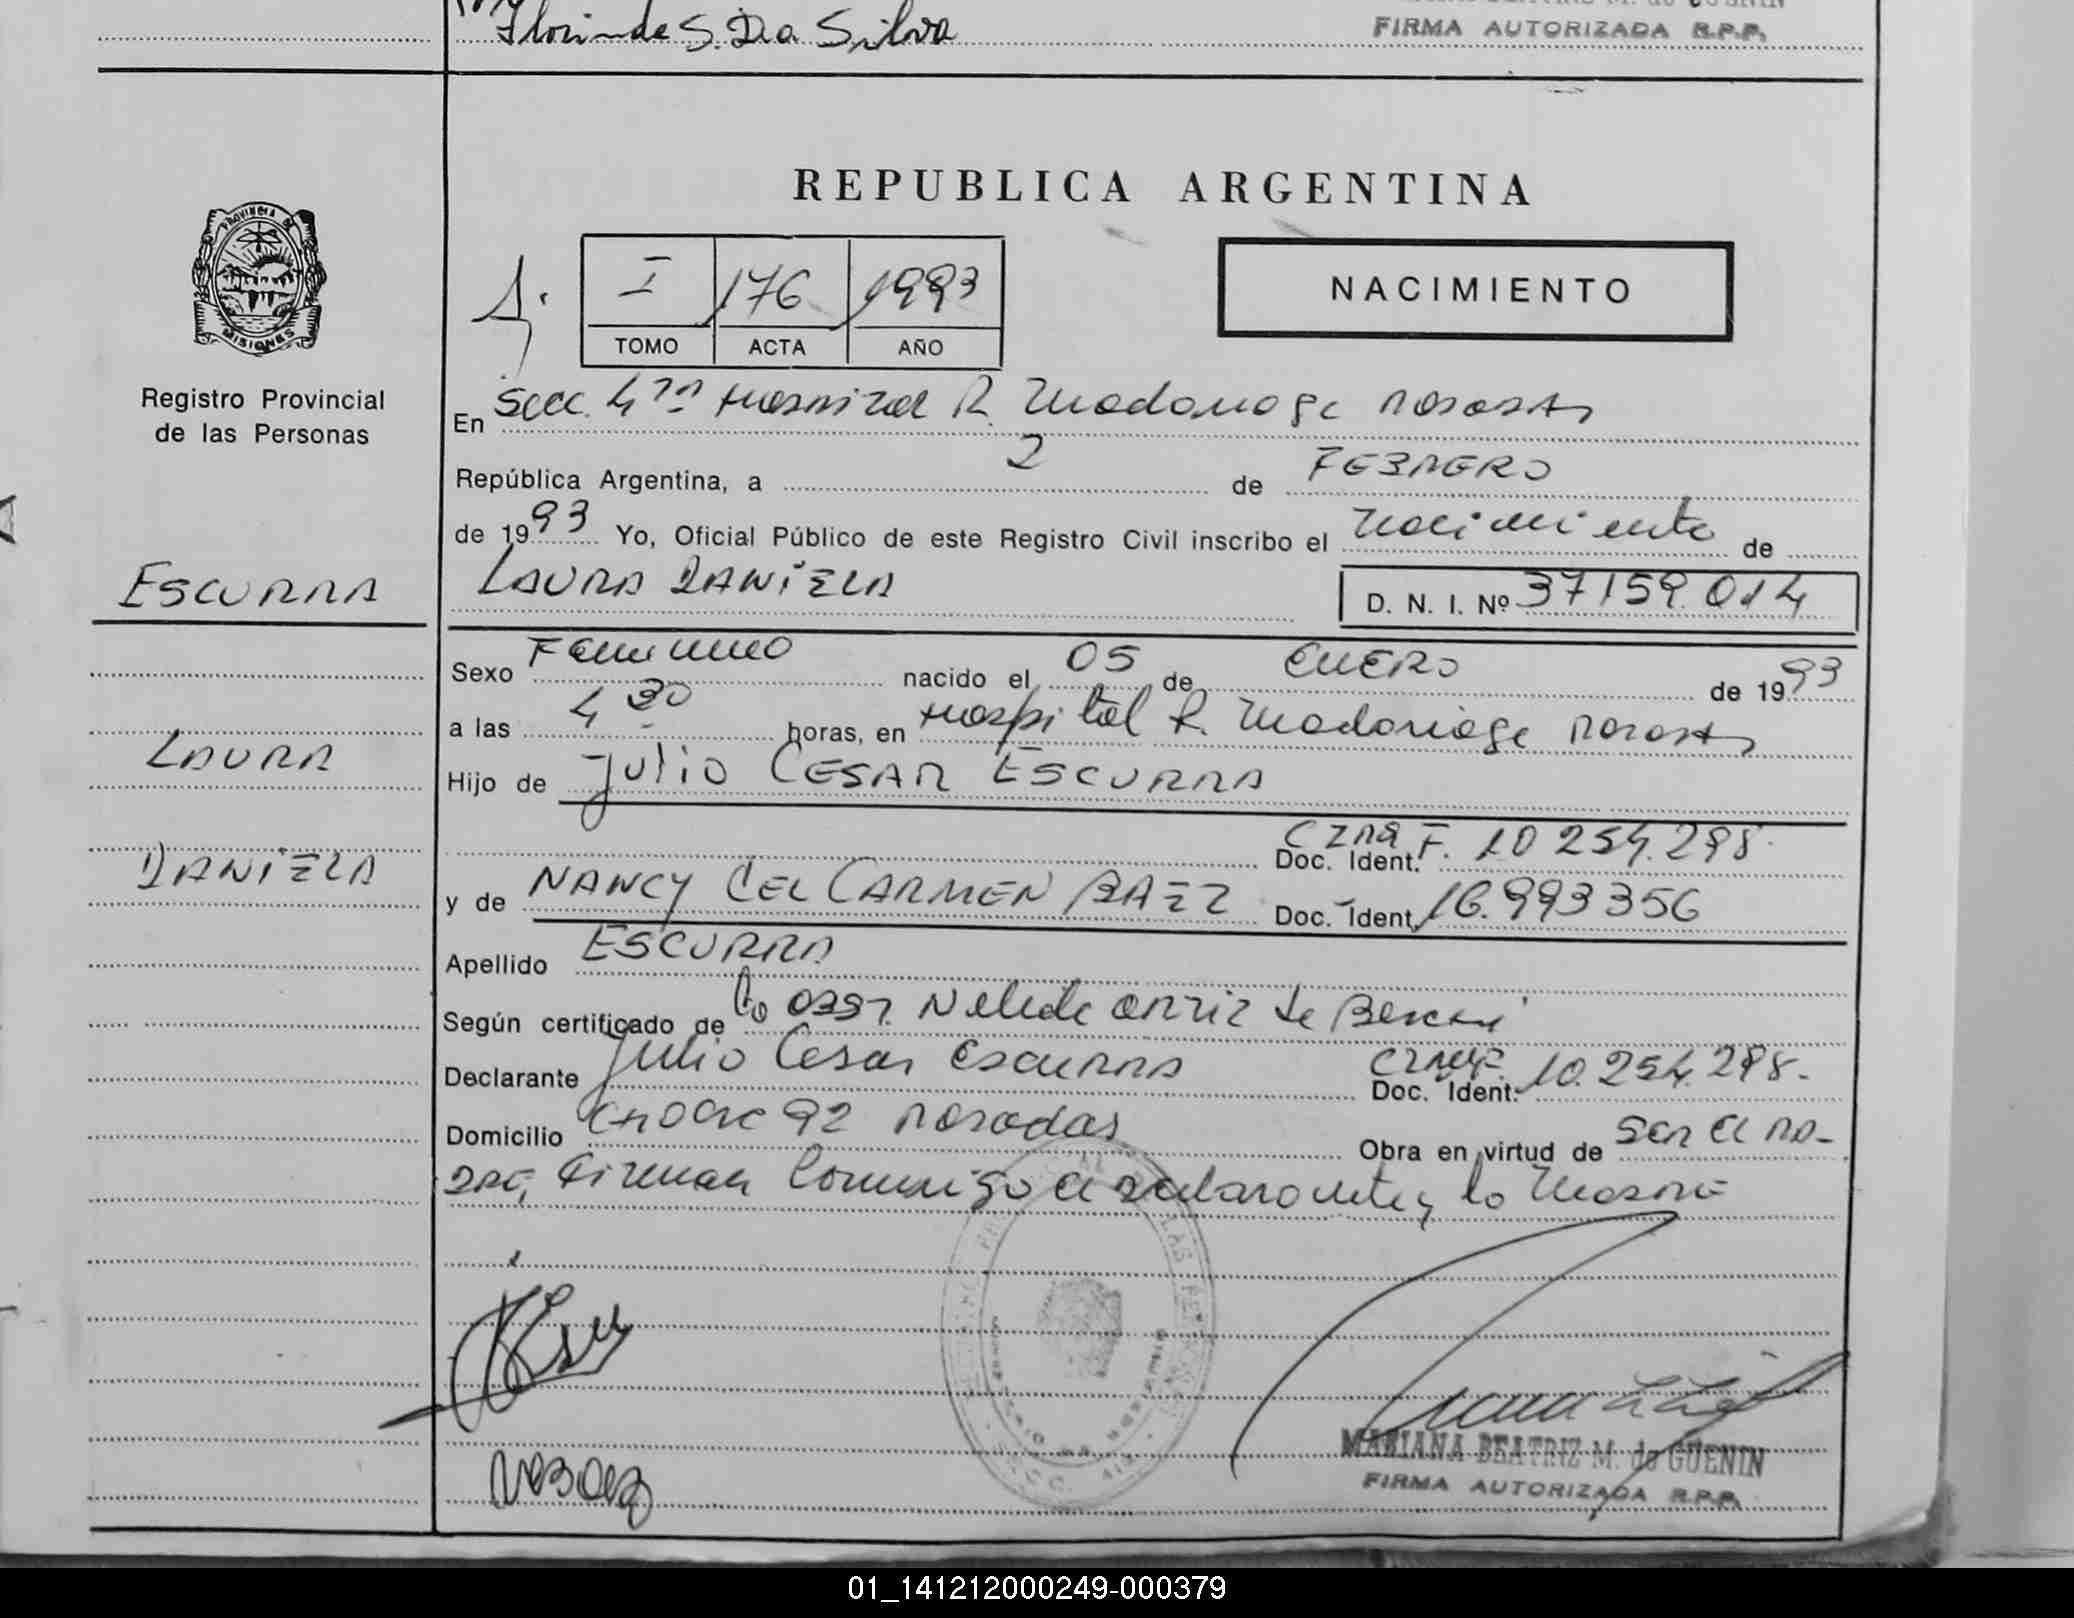 Florinda S. Da Silva
FIRMA AUTORIZADA R.P.P.
REPUBLICA ARGENTINA
PROVINCIA DE
MISIONES
I 176 1993
TOMO ACTA AÑO
NACIMIENTO
Registro Provincial
de las Personas
En Secc. 4ta Hospital R. Madariaga Posadas
República Argentina, a 2 de FEBRERO
de 1993 Yo, Oficial Público de este Registro Civil inscribo el Nacimiento de
ESCURRA
LAURA DANIELA D. N. I. Nº 37159.014
Sexo Femenino nacido el 05 de ENERO de 1993
a las 4 30 horas, en Hospital R. Madariaga Posadas
LAURA
Hijo de Julio CESAR ESCURRA
Doc. Ident. F. 10 254.298.
DANIELA
y de NANCY DEL CARMEN BAEZ Doc. Ident. 16.993356
Apellido ESCURRA
Según certificado de Nelida Ortiz de
Declarante Julio Cesar Escurra Doc. Ident. 10.254.298.
Domicilio 92 Posadas Obra en virtud de Ser el Pa-
dre, Firman Conmigo el declarante y la Madre
MARIANA BEATRIZ M. de GUENIN
FIRMA AUTORIZADA R.P.P.
01_141212000249-000379